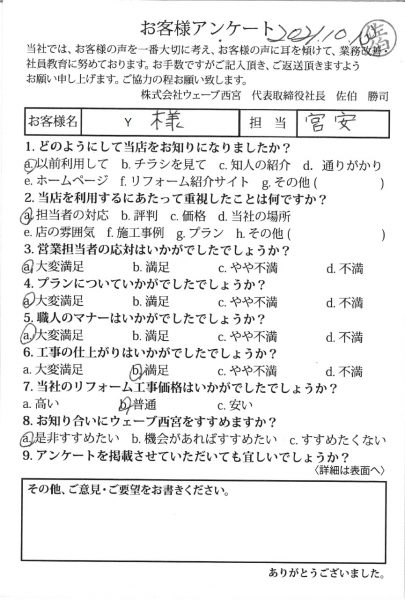 お客様アンケート 2021.10.
当社では、お客様の声を一番大切に考え、お客様の声に耳を傾けて、業務改善・
社員教育に努めております。お手数ですがご記入頂き、ご返送頂きますよう
お願い申し上げます。ご協力の程お願い致します。
株式会社ウェーブ西宮 代表取締役社長 佐伯 勝司
お客様名 Y 様 担当 宮安
1. どのようにして当店をお知りになりましたか?
a.以前利用して b. チラシを見て c. 知人の紹介 d. 通りがかり
e. ホームページ f. リフォーム紹介サイト g. その他( )
2. 当店を利用するにあたって重視したことは何ですか?
a.担当者の対応 b. 評判 c. 価格 d. 当社の場所
e. 店の雰囲気 f. 施工事例 g. プラン h. その他( )
3. 営業担当者の応対はいかがでしたでしょうか?
a. 大変満足 b. 満足 c. やや不満 d. 不満
4. プランについていかがでしたでしょうか?
a. 大変満足 b. 満足 c. やや不満 d. 不満
5. 職人のマナーはいかがでしたでしょうか?
a. 大変満足 b. 満足 c. やや不満 d. 不満
6. 工事の仕上がりはいかがでしたでしょうか?
a. 大変満足 b. 満足 c. やや不満 d. 不満
7. 当社のリフォーム工事価格はいかがでしたでしょうか?
a. 高い b. 普通 c. 安い
8. お知り合いにウェーブ西宮をすすめますか?
a.是非すすめたい b. 機会があればすすめたい c. すすめたくない
9. アンケートを掲載させていただいても宜しいでしょうか?
〈詳細は表面へ〉
その他、ご意見・ご要望をお書きください。
ありがとうございました。